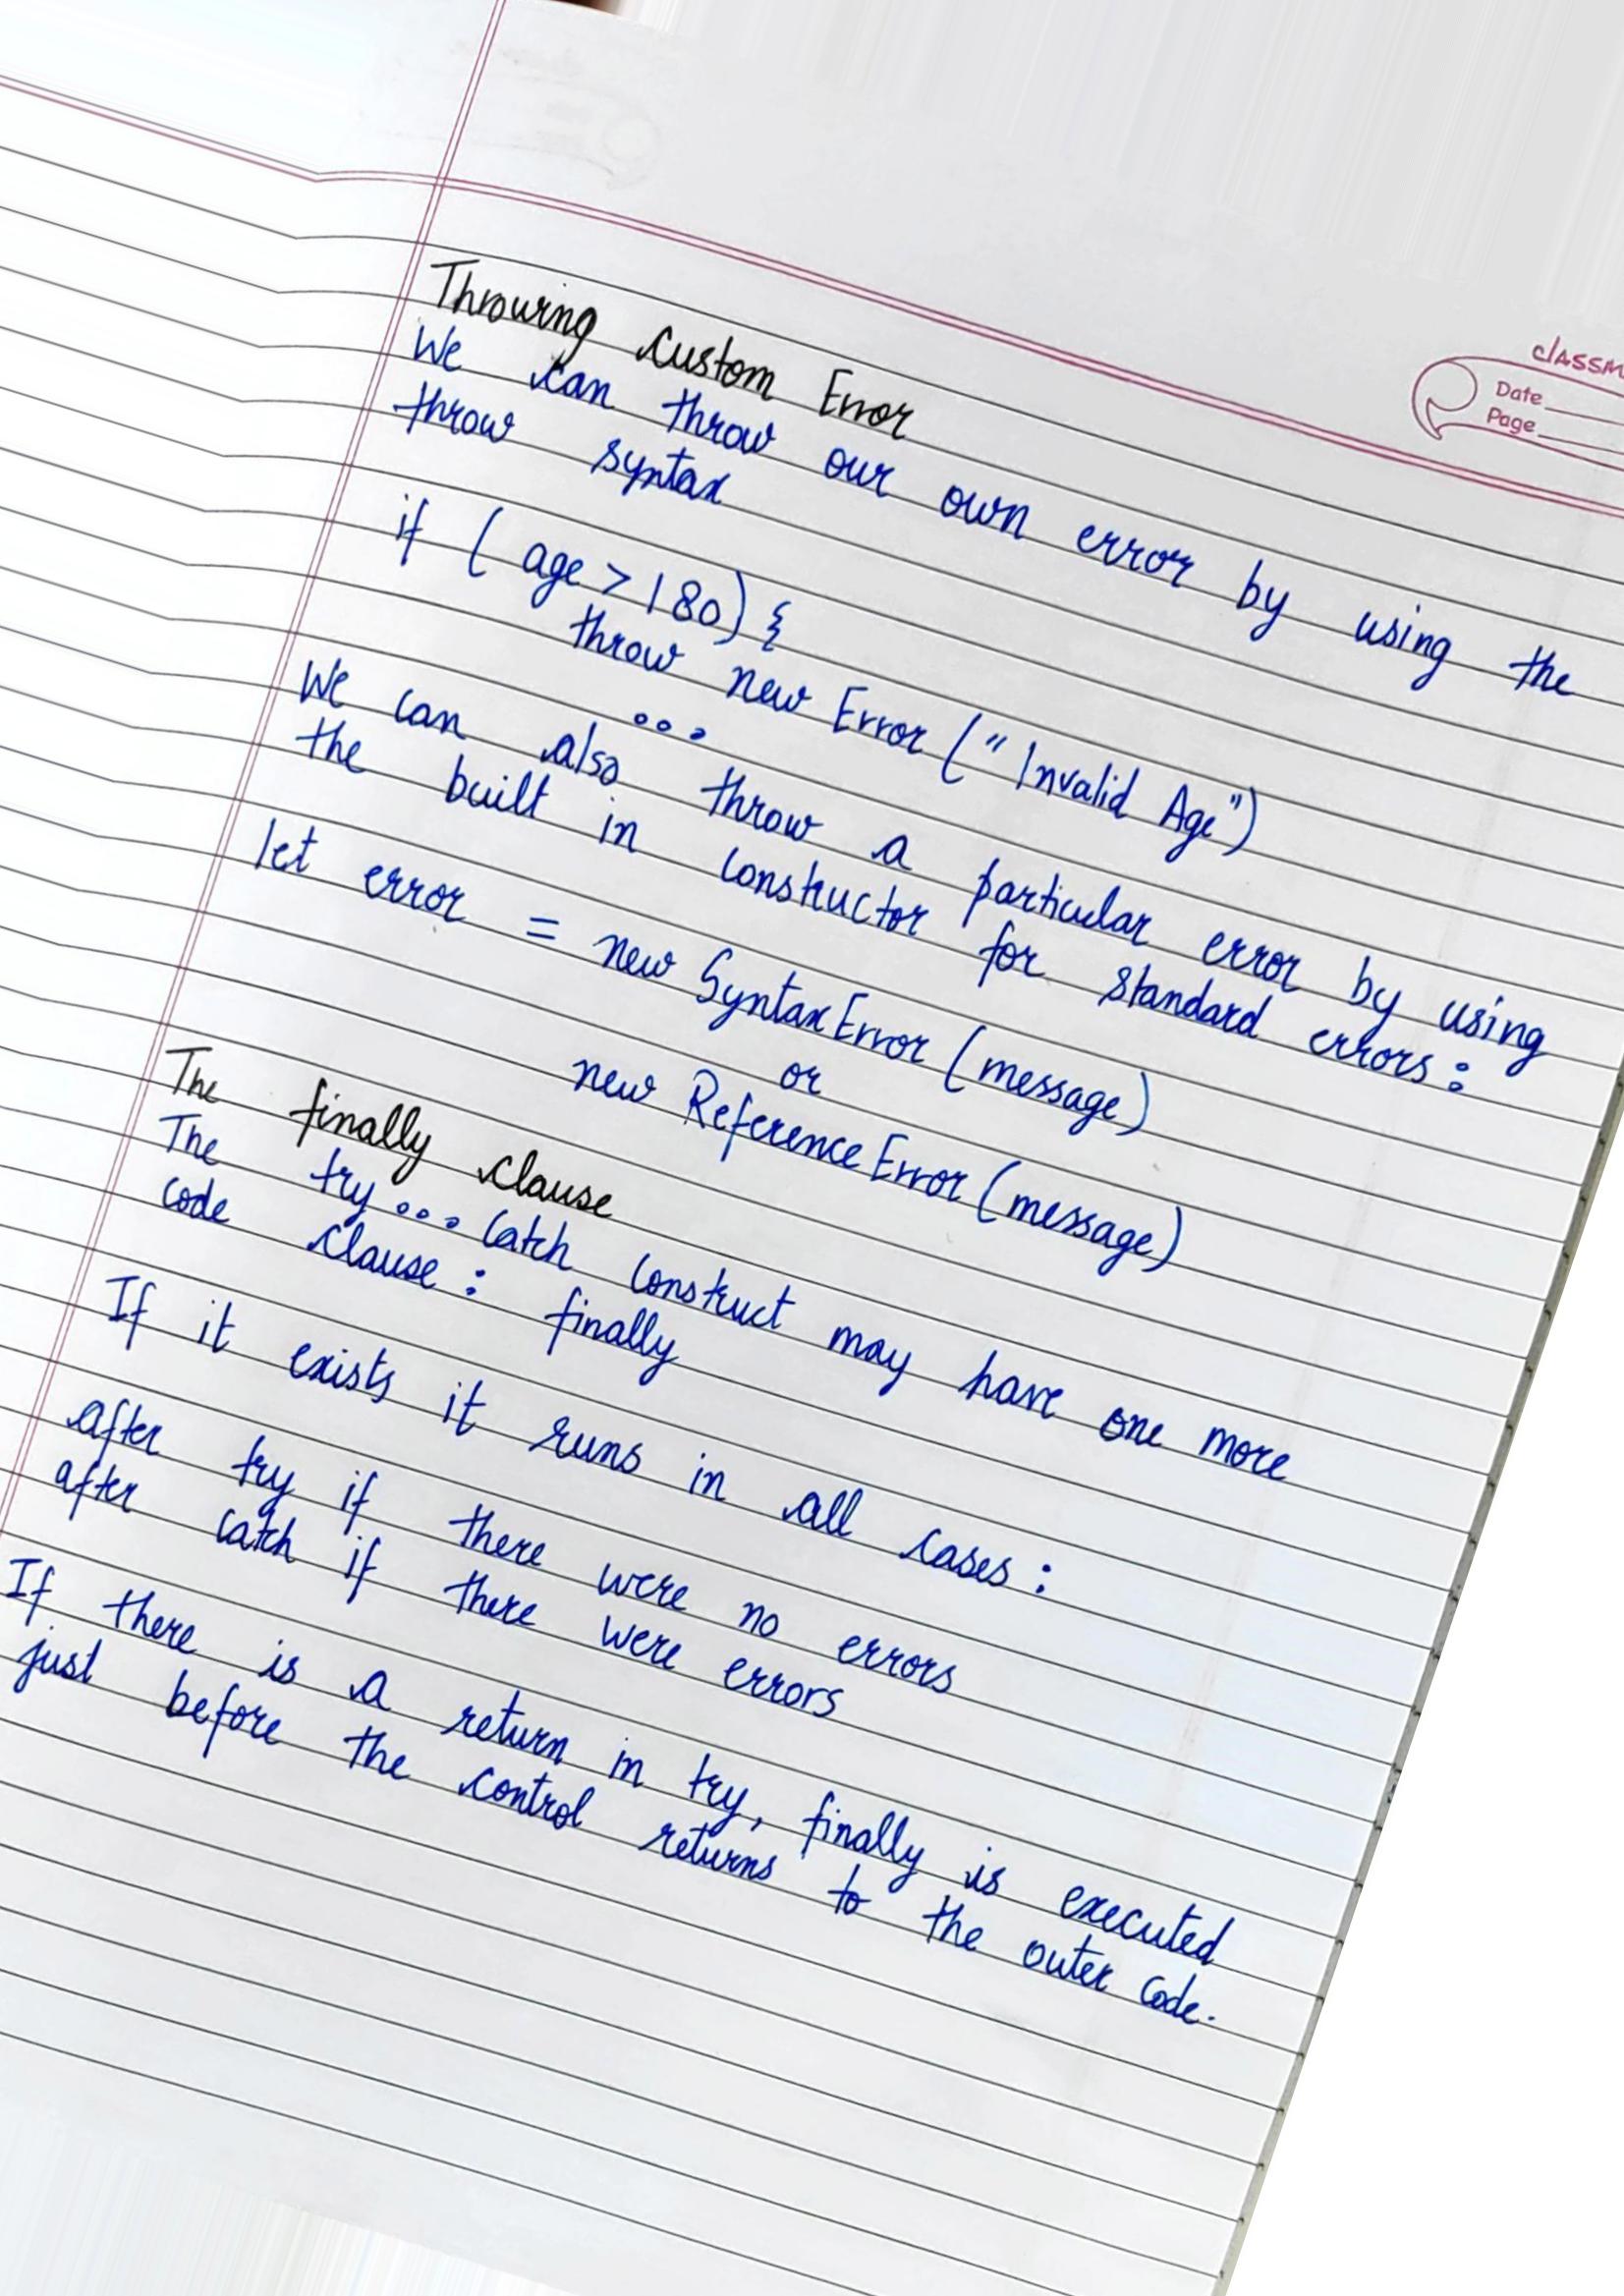 classm
Date
Page
Throwing Custom Error
We can throw our own error by using the
throw syntax
if ( age > 180) {
throw new Error ("Invalid Age")
...
We can also throw a particular error by using
the built in constructor for standard errors :
let error = new SyntaxError (message)
or
new ReferenceError (message)
The finally clause
The try ... catch construct may have one more
code clause : finally
If it exists it runs in all cases :
after try if there were no errors
after catch if there were errors
If there is a return in try, finally is executed
just before the control returns to the outer code.